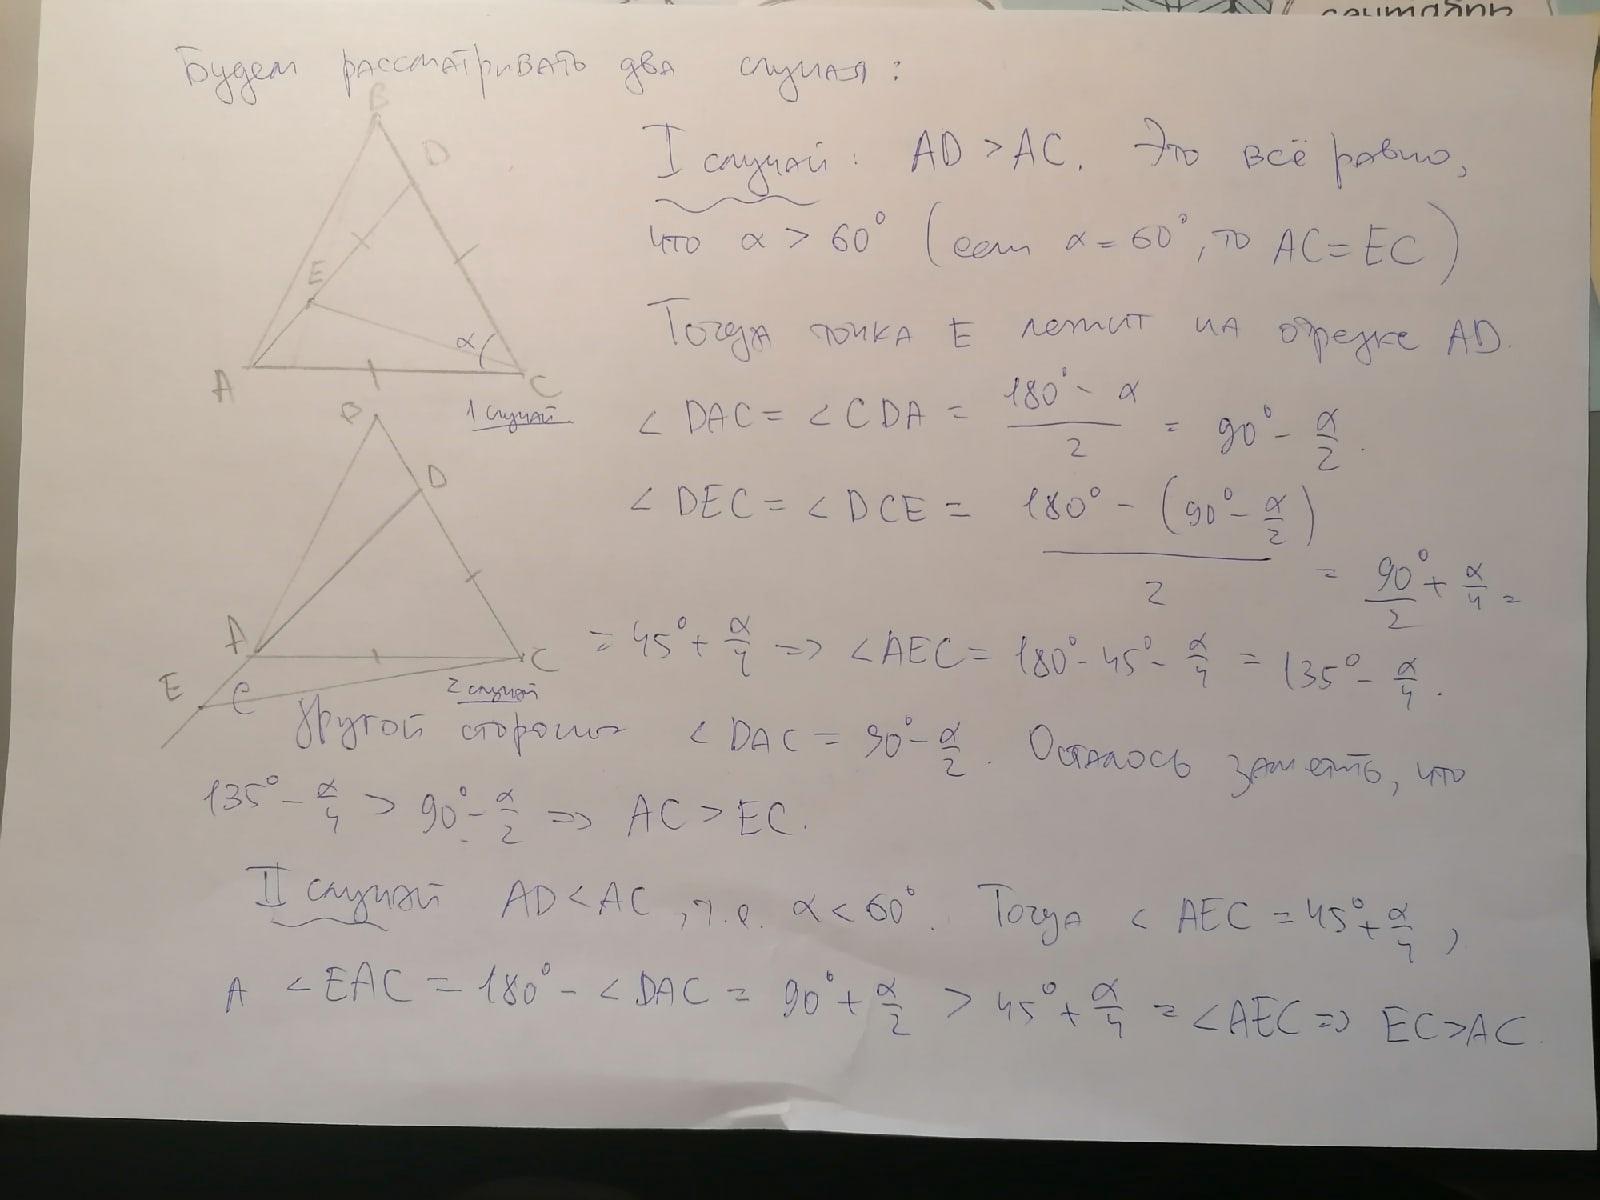 Будем рассматривать два случая:
B
D
E
α
A
C
1 случай
I случай: AD > AC. Это всё равно,
что α > 60° (если α = 60°, то AC = EC)
Тогда точка E лежит на отрезке AD.
∠DAC = ∠CDA = (180° - α)/2 = 90° - α/2.
∠DEC = ∠DCE = (180° - (90° - α/2))/2 = 90°/2 + α/4 =
= 45° + α/4 => ∠AEC = 180° - 45° - α/4 = 135° - α/4.
B
D
A
C
E
2 случай
С другой стороны ∠DAC = 90° - α/2. Осталось заметить, что
135° - α/4 > 90° - α/2 => AC > EC.
II случай AD < AC, т.е. α < 60°. Тогда ∠AEC = 45° + α/4,
А ∠EAC = 180° - ∠DAC = 90° + α/2 > 45° + α/4 = ∠AEC => EC > AC.